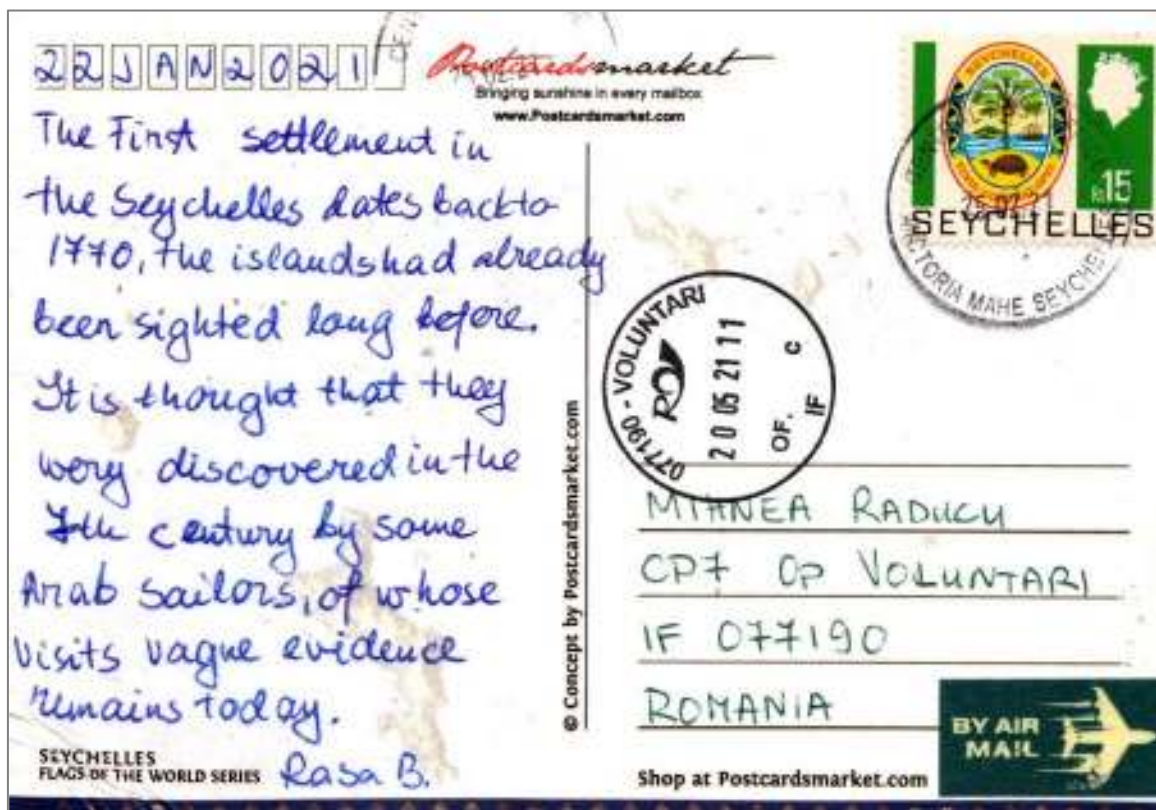 22JAN2021
Postcardsmarket
Bringing sunshine in every mailbox
www.Postcardsmarket.com
The First settlement in
the Seychelles dates back to
1770, the islands had already
been sighted long before.
It is thought that they
wery discovered in the
7th century by some
Arab sailors, of whose
visits vague evidence
remains today.
Rasa B.
SEYCHELLES
FLAGS OF THE WORLD SERIES
© Concept by Postcardsmarket.com
SEYCHELLES
Rs15
SEYCHELLES
VICTORIA MAHE SEYCHELLES
077190 - VOLUNTARI
20 05 21 11
OF. C
IF
MIHNEA RADUCU
CP7 OP VOLUNTARI
IF 077190
ROMANIA
BY AIR
MAIL
Shop at Postcardsmarket.com